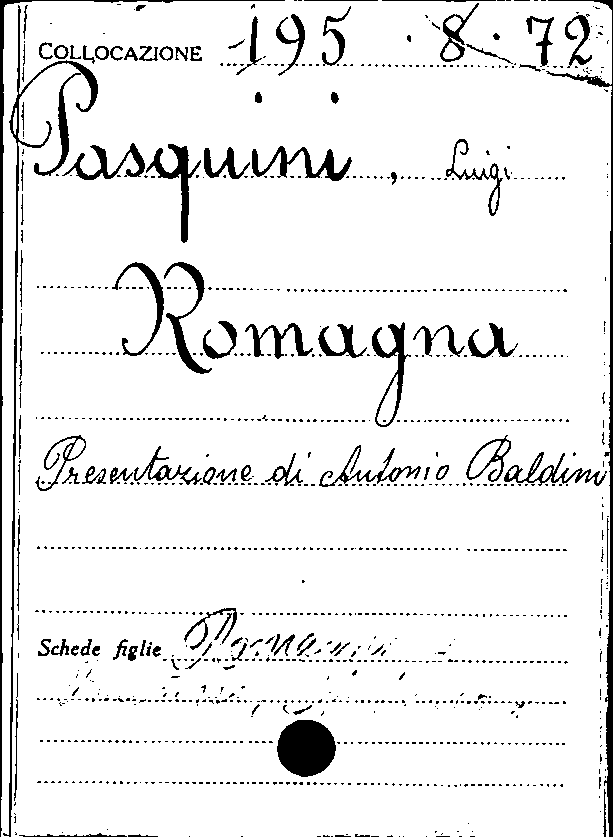 COLLOCAZIONE 195 . 8 . 72
Pasquini, Luigi
Romagna
Presentazione di Antonio Baldini
Schede figlie